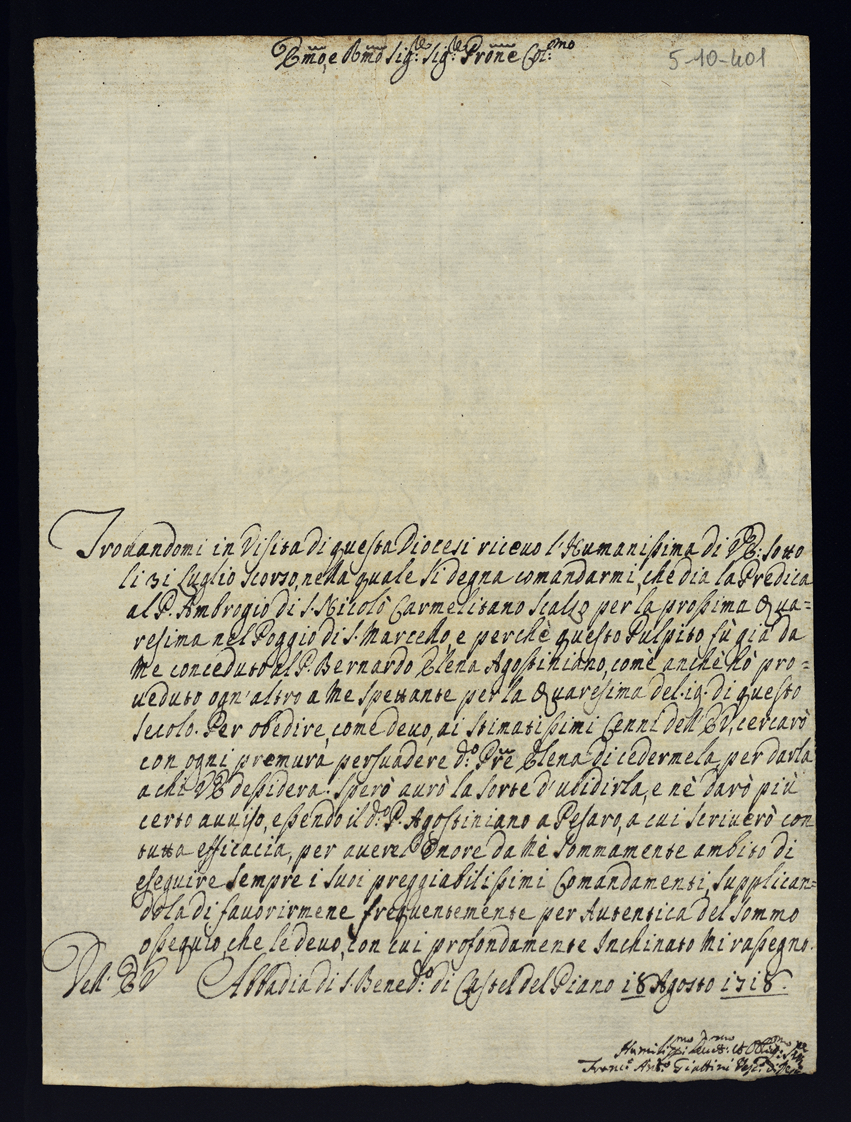 Emo, e Rmo Sig.re Sig.re Prone Col.mo
5-10-401
Trouandomi in Visita di questa Diocesi riceuo l'Humanissima di VE: sotto
li 31 Luglio scorso, nella quale si degna comandarmi, che dia la Predica
al P. Ambrogio di S. Nicolò Carmelitano Scalzo per la prossima Qua=
resima nel Poggio di S. Marcello, e perchè questo Pulpito fù già da
me conceduto al P. Bernardo Elena Agostiniano, com'è anchè hò pro=
ueduto ogn'altro a me spettante per la Quaresima del .19. di questo
secolo. Per obedire, come deuo, ai stimatissimi Cenni dell'EV, cercarò
con ogni premura persuadere d.o Pre Elena di cedermela, per darla
a chi VE desidera. Sperò aurò la sorte d'ubidirla, e nè darò più
certo auuiso, essendo il d.o P. Agostiniano a Pesaro, a cui scriuerò con
tutta efficacia, per auere l'Onore da mè sommamente ambito di
eseguire sempre i suoi preggiabilissimi Comandamenti, supplican=
dola di fauorirmene frequentemente per Autentica del sommo
ossequio, che lè deuo, con cui profondamente Inchinato mi rassegno.
Dell' EV Abbadia di S. Bened.o di Castel del Piano 18 Agosto 1718.
Humiliss.mo Deu.mo et Obblig.mo
Franc.o Ant.o Giattini